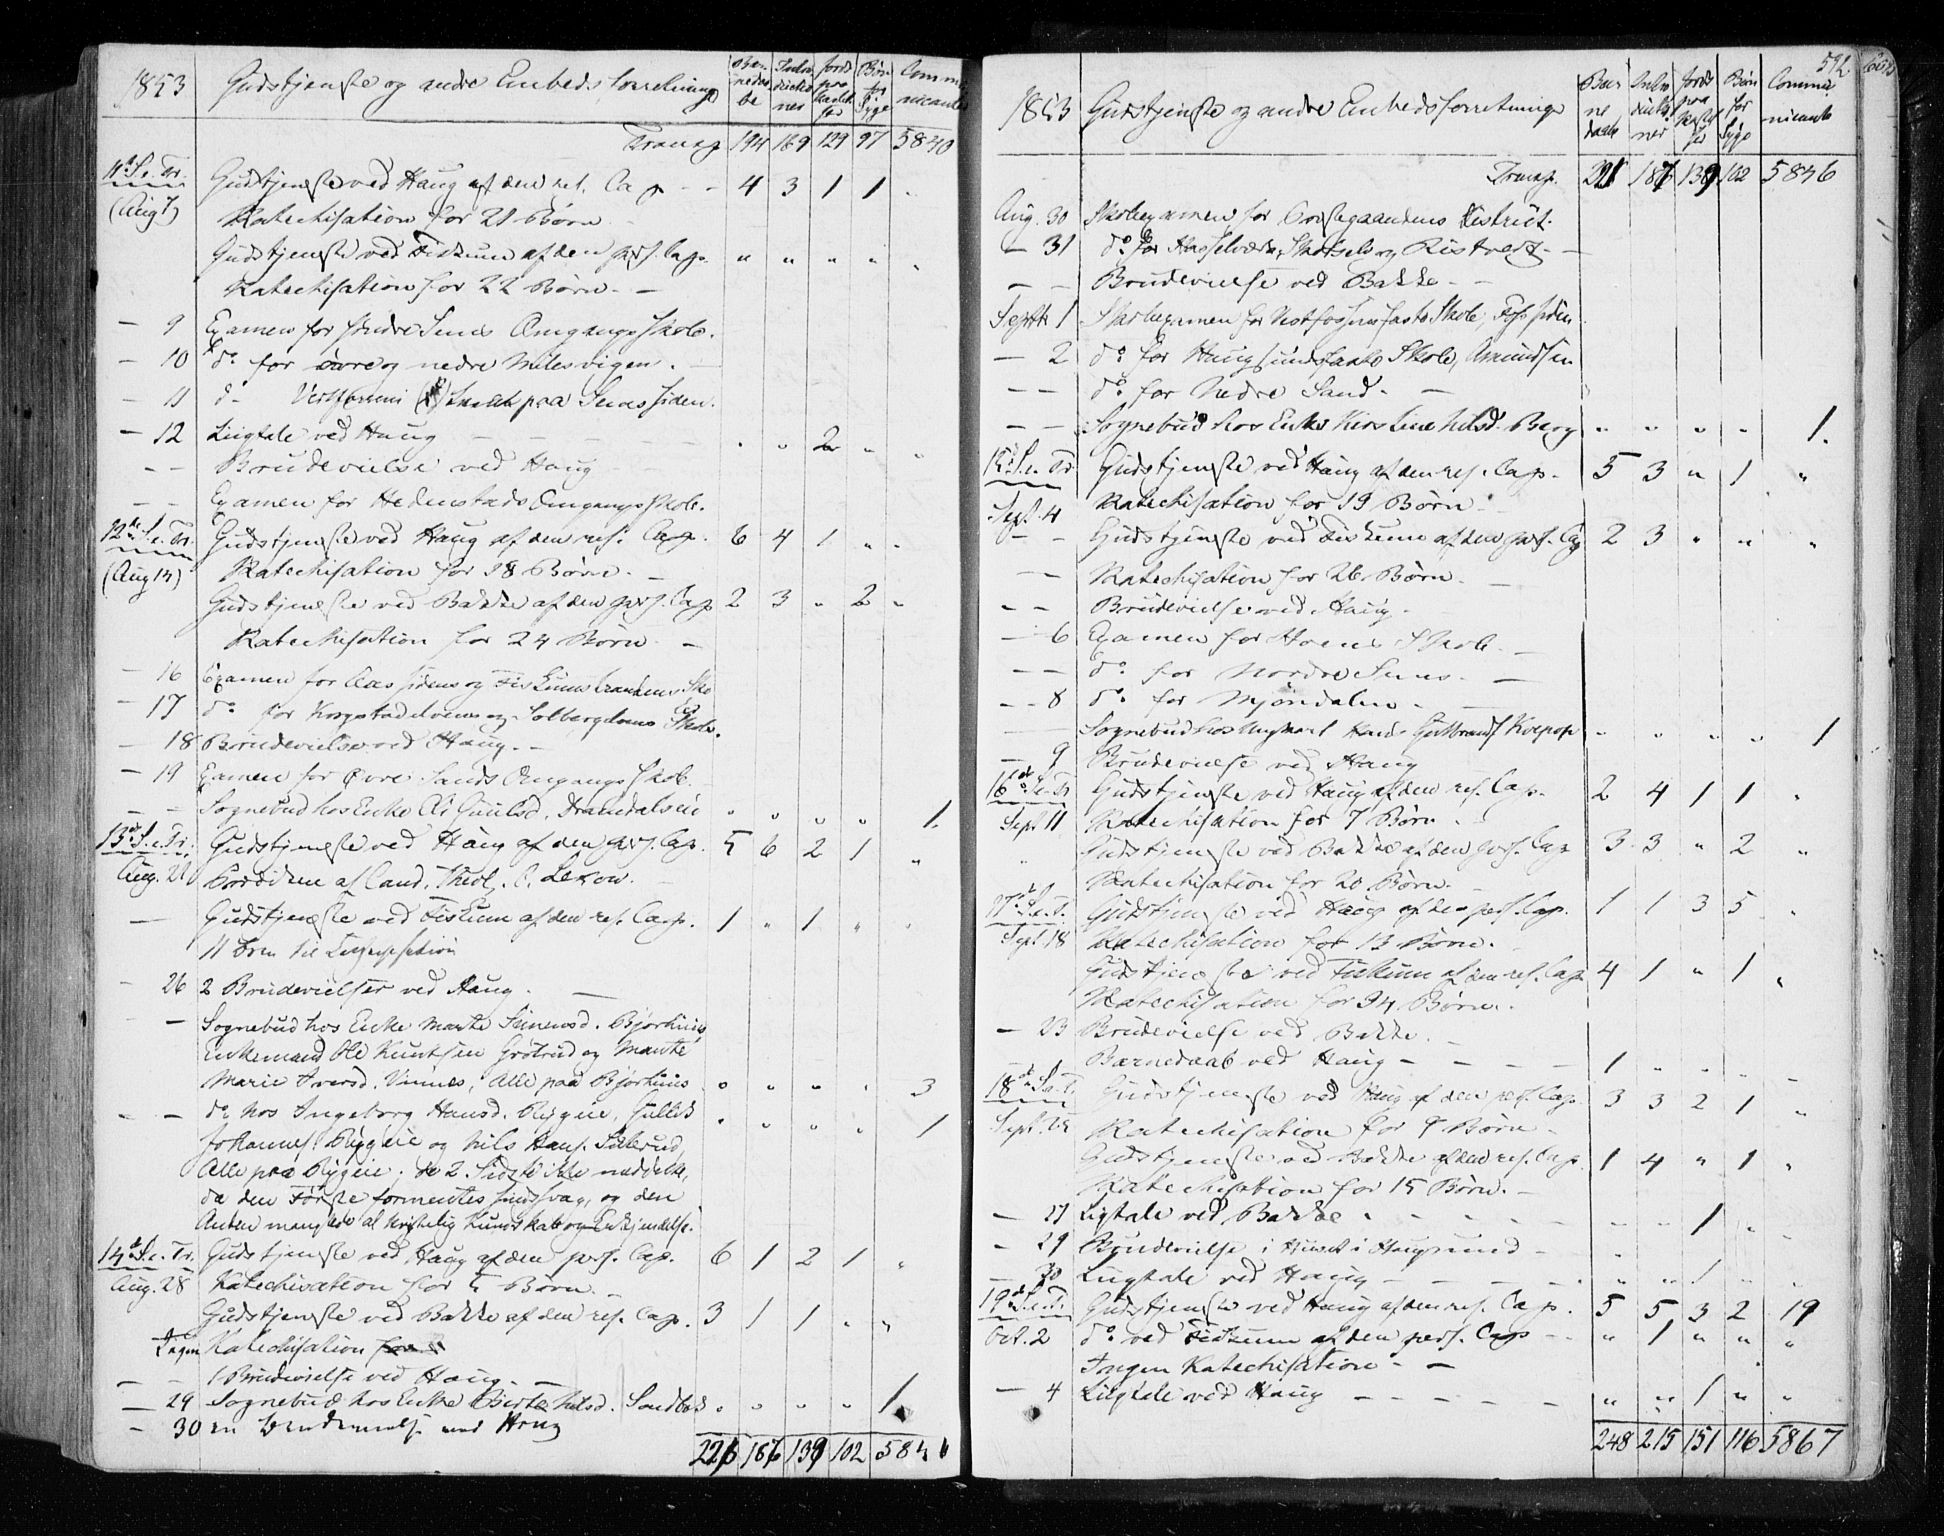 1853 Gudstjenste og andre Embedsforretninger Communicanter
Transp 194 169 129 97 5840
11te S. e. Tr. Gudstjenste ved Haug af den res. Cap - - 4 3 1 1
(Aug 7) Katechisation for 21 Børn
Gudstjenste ved Fiskum af den pers. Cap. " " " "
Katechisation for 22 Børn - -
- 9 Examen for søndre Omgangs Skole.
- 10 do for øvre og nedre Milesvigen.
- 11 d- paa
- 12 Liigtale ved Haug - - - - " 2 " "
- - Brudevielse ved Haug
- - Examen for Hedenstads Omgangs Skole.
12te S. e. Tr. Gudstjenste ved Haug af den res. Cap. 6 4 1 " "
(Aug 14) Katechisation for 18 Børn.
Gudstjeneste ved Bakke af den pers. Cap 2 3 " 2 "
Katechisation for 24 Børn -
- 16 Examen for Aassidens og Fiskum
- 17 do for og Solbergelvens Skole.
- 18 Brudevielse ved Haug. -
- 19 Examen for Øvre Sands Omgangs Skole
- - Sognebud hos Enke " " " " 1.
13de S. e. Tr. Gudstjeneste ved Haug af den pers. Cap. 5 6 2 1 "
Aug. 21 Prædiken af Cand. Theol. C. Lexow.
- Gudstjeneste ved Fiskum af den res. Cap. 1 " 1 " "
11 Børn til
- 26 2 Brudevielser ved Haug. -
- Sognebud hos Enke Marthe Simensd. Bjørkness
Enkemand Ole Knutsen Grøtrud og Marthe
Marie Iversd. Vinnes, Alle paa Bjørknes " " " " 3
- - do hos Ingeborg Hansd. Ryggie, Gullik " " " " 1
Johannes. Ryggie og Nils Hans.
Alle paa Ryggie; de 2 Sidste ikke meddelte,
da den Første formentes sindssvag, og den
Anden manglede al kristelig Kundskab og Erkjendelse.
14de S. e. Tr. Gudstjenste ved Haug af den pers. Cap. 6 1 2 1 "
Aug. 28 Katechisation for 5 Børn.
Gudstjenste ved Bakke af den res. Cap. 3 1 1 " "
Ingen Katechisation
- - 1 Brudevielse ved Haug. -
- 29 Sognebud hos Enke Birte Nilsd. Sandbek " " " " 1
- 30 en Brudevielse ved Haug
187 139 102 5846

592
1853 Gudstjenste og andre Embedsforretninger Communicante
Transp. 221 187 139 102 5846
Aug. 30 Skoleexamen for District.
- 31 do for Hasselværk, Skotselv og
- - Brudevielse ved Bakke - -
Septbr 1 Skoleexamen for Vestfossens faste Skole,
- 2 do for Haugsunds faste Skole, Amundsen
- - do for Nedre Sand. -
- - Sognebud hos Enke Kirstine Nilsd. Berg " " " " 1.
15de S. e. Tr Gudstjenste ved Haug af den res. Cap. 5 3 " 1 "
Sept. 4 Katechisation for 19 Børn
- - Gudstjenste ved Fiskum af den pers. Cap 2 3 " " "
- - Katechisation for 26 Børn.
- - Brudevielse ved Haug.
- 6 Examen for Hoens Skole.
- - do for Nordre
- - 8 do for Mjøndalen.
- Sognebud hos Ungkarl Hans Gulbrands. " " " " 1
- 9 Brudevielse ved Haug
16de S. e. Tr Gudstjenste ved Haug af den res. Cap. 2 4 1 1 "
Sept 11 Katechisation for 7 Børn.
" Gudstjenste ved Bakke af den pers. Cap 3 3 " 2 "
Katechisation for 20 Børn.
17de S. e. T. Gudstjenste ved Haug af den pers. Cap. 1 1 3 5 "
Sept. 18 Katechisation for 13 Børn.
Gudstjeneste ved Fiskum af den res. Cap 4 1 " 1 "
Katechisation for 34 Børn.
- 23 Brudevielse ved Bakke.
Barnedaab ved Haug - - - 1 " " " "
18de S. e. T. Gudstjeneste ved Haug af den pers. Cap. 3 3 2 1 "
Sept. 25 Katechisation for 9 Børn.
Gudstjenste ved Bakke af den res. Cap. 1 4 " 1 "
Katechisation for 15 Børn. -
- 27 Ligtale ved Bakke - - - " " 1 "
- 29 Brudevielse i Huset i Haugsund
- 30 Liigtale ved Haug - - - " " 1 " "
19de S. e. T. Gudstjenste ved Haug af den res. Cap. 5 5 3 2 19
Oct. 2 do ved Fiskum af den pers. Cap - " 1 " " "
Ingen Katechisation - -
- 4 Liigtale ved Haug - - - " " 1 " "
248 215 151 116 5867